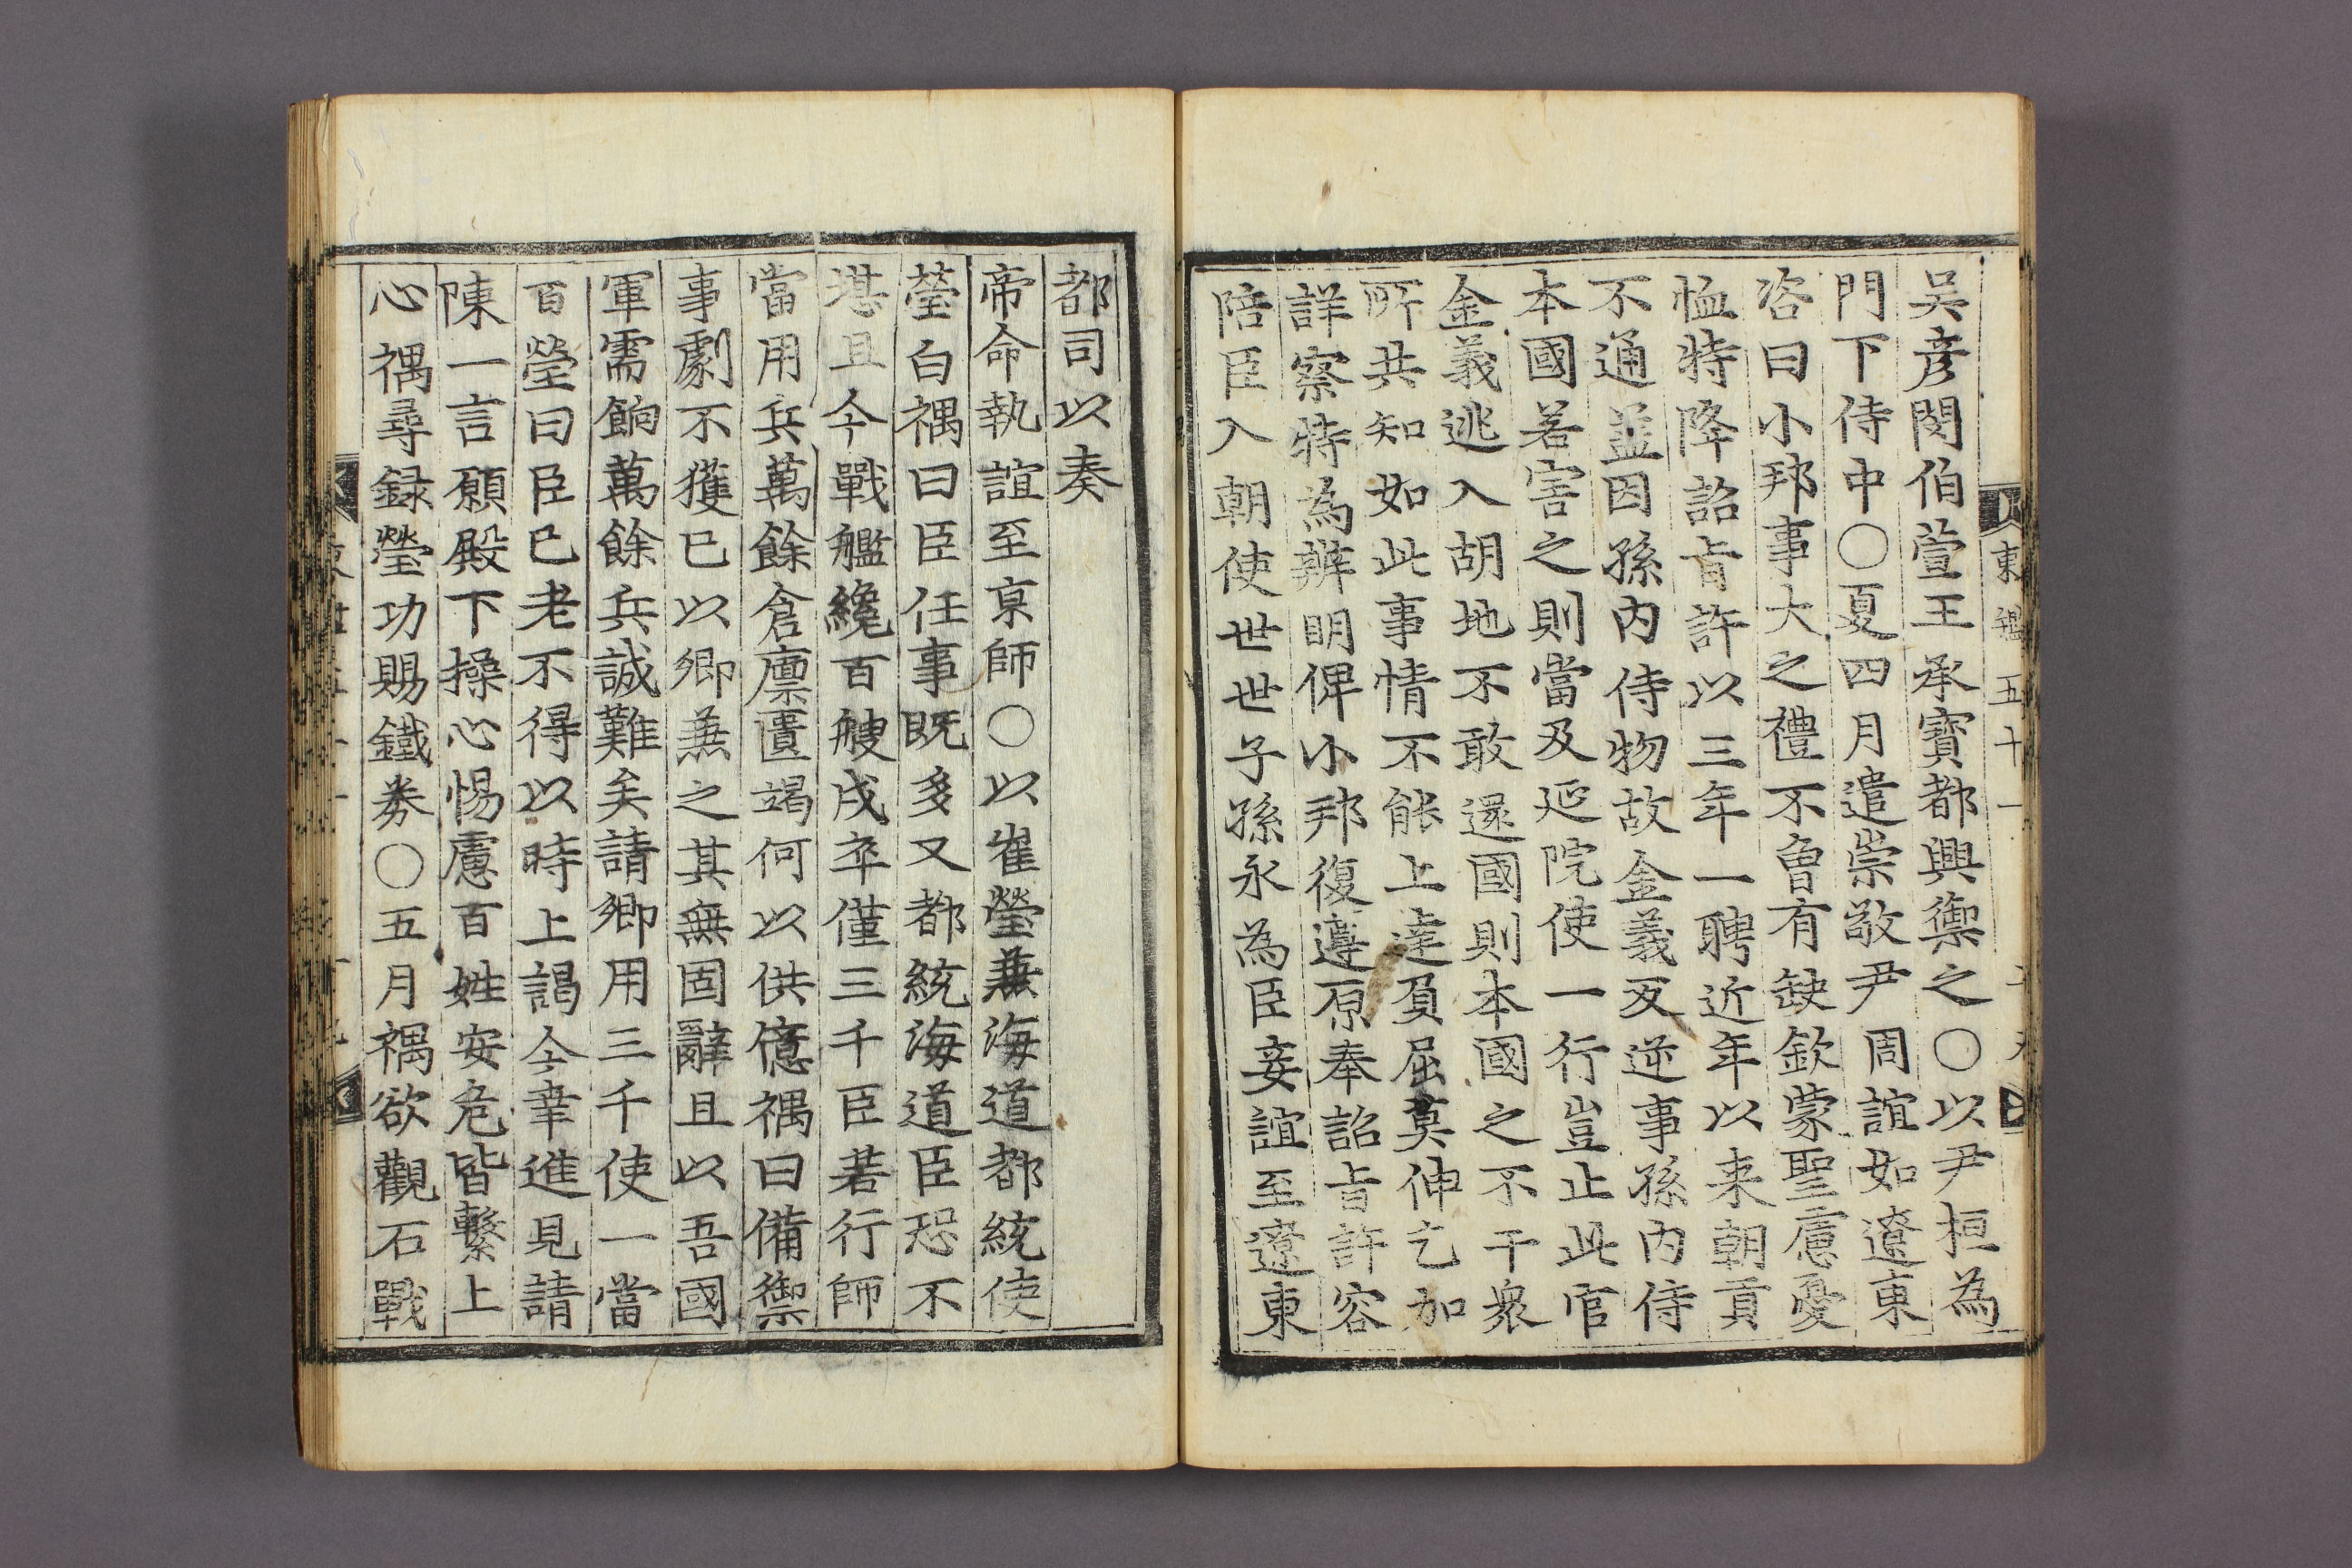 東鑑五十一
吴彦閔伯萱王承寶都興禦之○以尹桓為
門下侍中○夏四月遣崇敬尹周誼如遼東
咨曰小邦事大之禮不曾有缺欽蒙聖慮憂
恤特降詔旨許以三年一聘近年以来朝貢
不通盖因孫内侍物故金義叛逆事孫内侍
本國若害之則當及延院使一行豈止此官
金義逃入胡地不敢還國則本國之不干衆
所共知如此事情不能上達負屈莫伸乞加
詳察特為辨明俾小邦復遵原奉詔旨許容
陪臣入朝使世世子孫永為臣妾誼至遼東
都司以奏
帝命執誼至京師○以崔瑩兼海道都統使
瑩白禑曰臣任事既多又都統海道臣恐不
堪且今戰艦纔百艘戍卒僅三千臣若行師
當用兵萬餘倉廩匱竭何以供億禑曰備禦
事劇不獲已以卿兼之其無固辭且以吾國
軍需餉萬餘兵誠難矣請卿用三千使一當
百瑩曰臣已老不得以時上謁今幸進見請
陳一言願殿下操心惕慮百姓安危皆繫上
心禑尋録瑩功賜鐵券○五月禑欲觀石戰